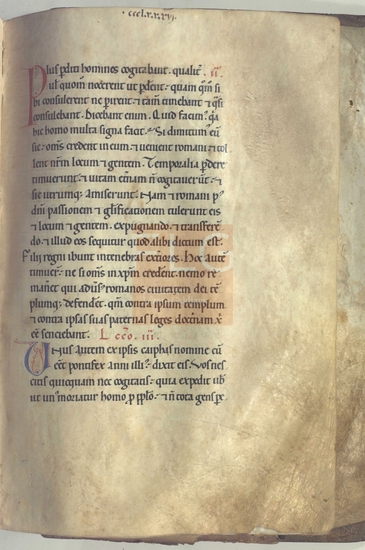 ccclxxxvi.
Plus p̄diti homines cogitabant. qualit̄ .ii.
ul' quom̊ nocerent ut p̄derent. quam qm̊ si
bi consulerent ne perirent. ⁊ tam̄ timebant ⁊ q̄si
consulebant. Dicebant enim. Quid facim᷒. q̄a
hic homo multa signa facit. Si dimittim᷒ eū
sic. om̄s credent in eum. ⁊ uenient romani ⁊ tol
lent nr̄m locum ⁊ gentem. Temporalia p̄dere
timuerunt. ⁊ uitam et̄nam n̄ cogitauerūt. ⁊
sic utrumq; amiserunt. Nam ⁊ romani p᷒
dn̄i passionem ⁊ gl̄ificationem tulerunt eis
⁊ locum ⁊ gentem. expugnando ⁊ transferē
do. ⁊ illud eos sequitur quod alibi dictum est.
Filii regni ibunt in tenebras ext̄iores. Hoc autē
timuer̄. ne si om̄s in xp̄m credent. nemo re
manet̄ qui adūs᷒ romanos ciuitatem dei tē
plumq; defendet̄. qm̄ contra ipsum templum
⁊ contra ipsas suas paternas leges doct̄nam x̄
eē sentiebant. Lectio. iii.
Unus autem ex ipsis caiphas nomine cū
eēt pontifex anni illi᷒. dixit eis. Vos nes
citis quicquam nec cogitatis. quia expedit uob
ut un᷒ moriatur homo p̄ pp̄lo. ⁊ n̄ tota gens pe